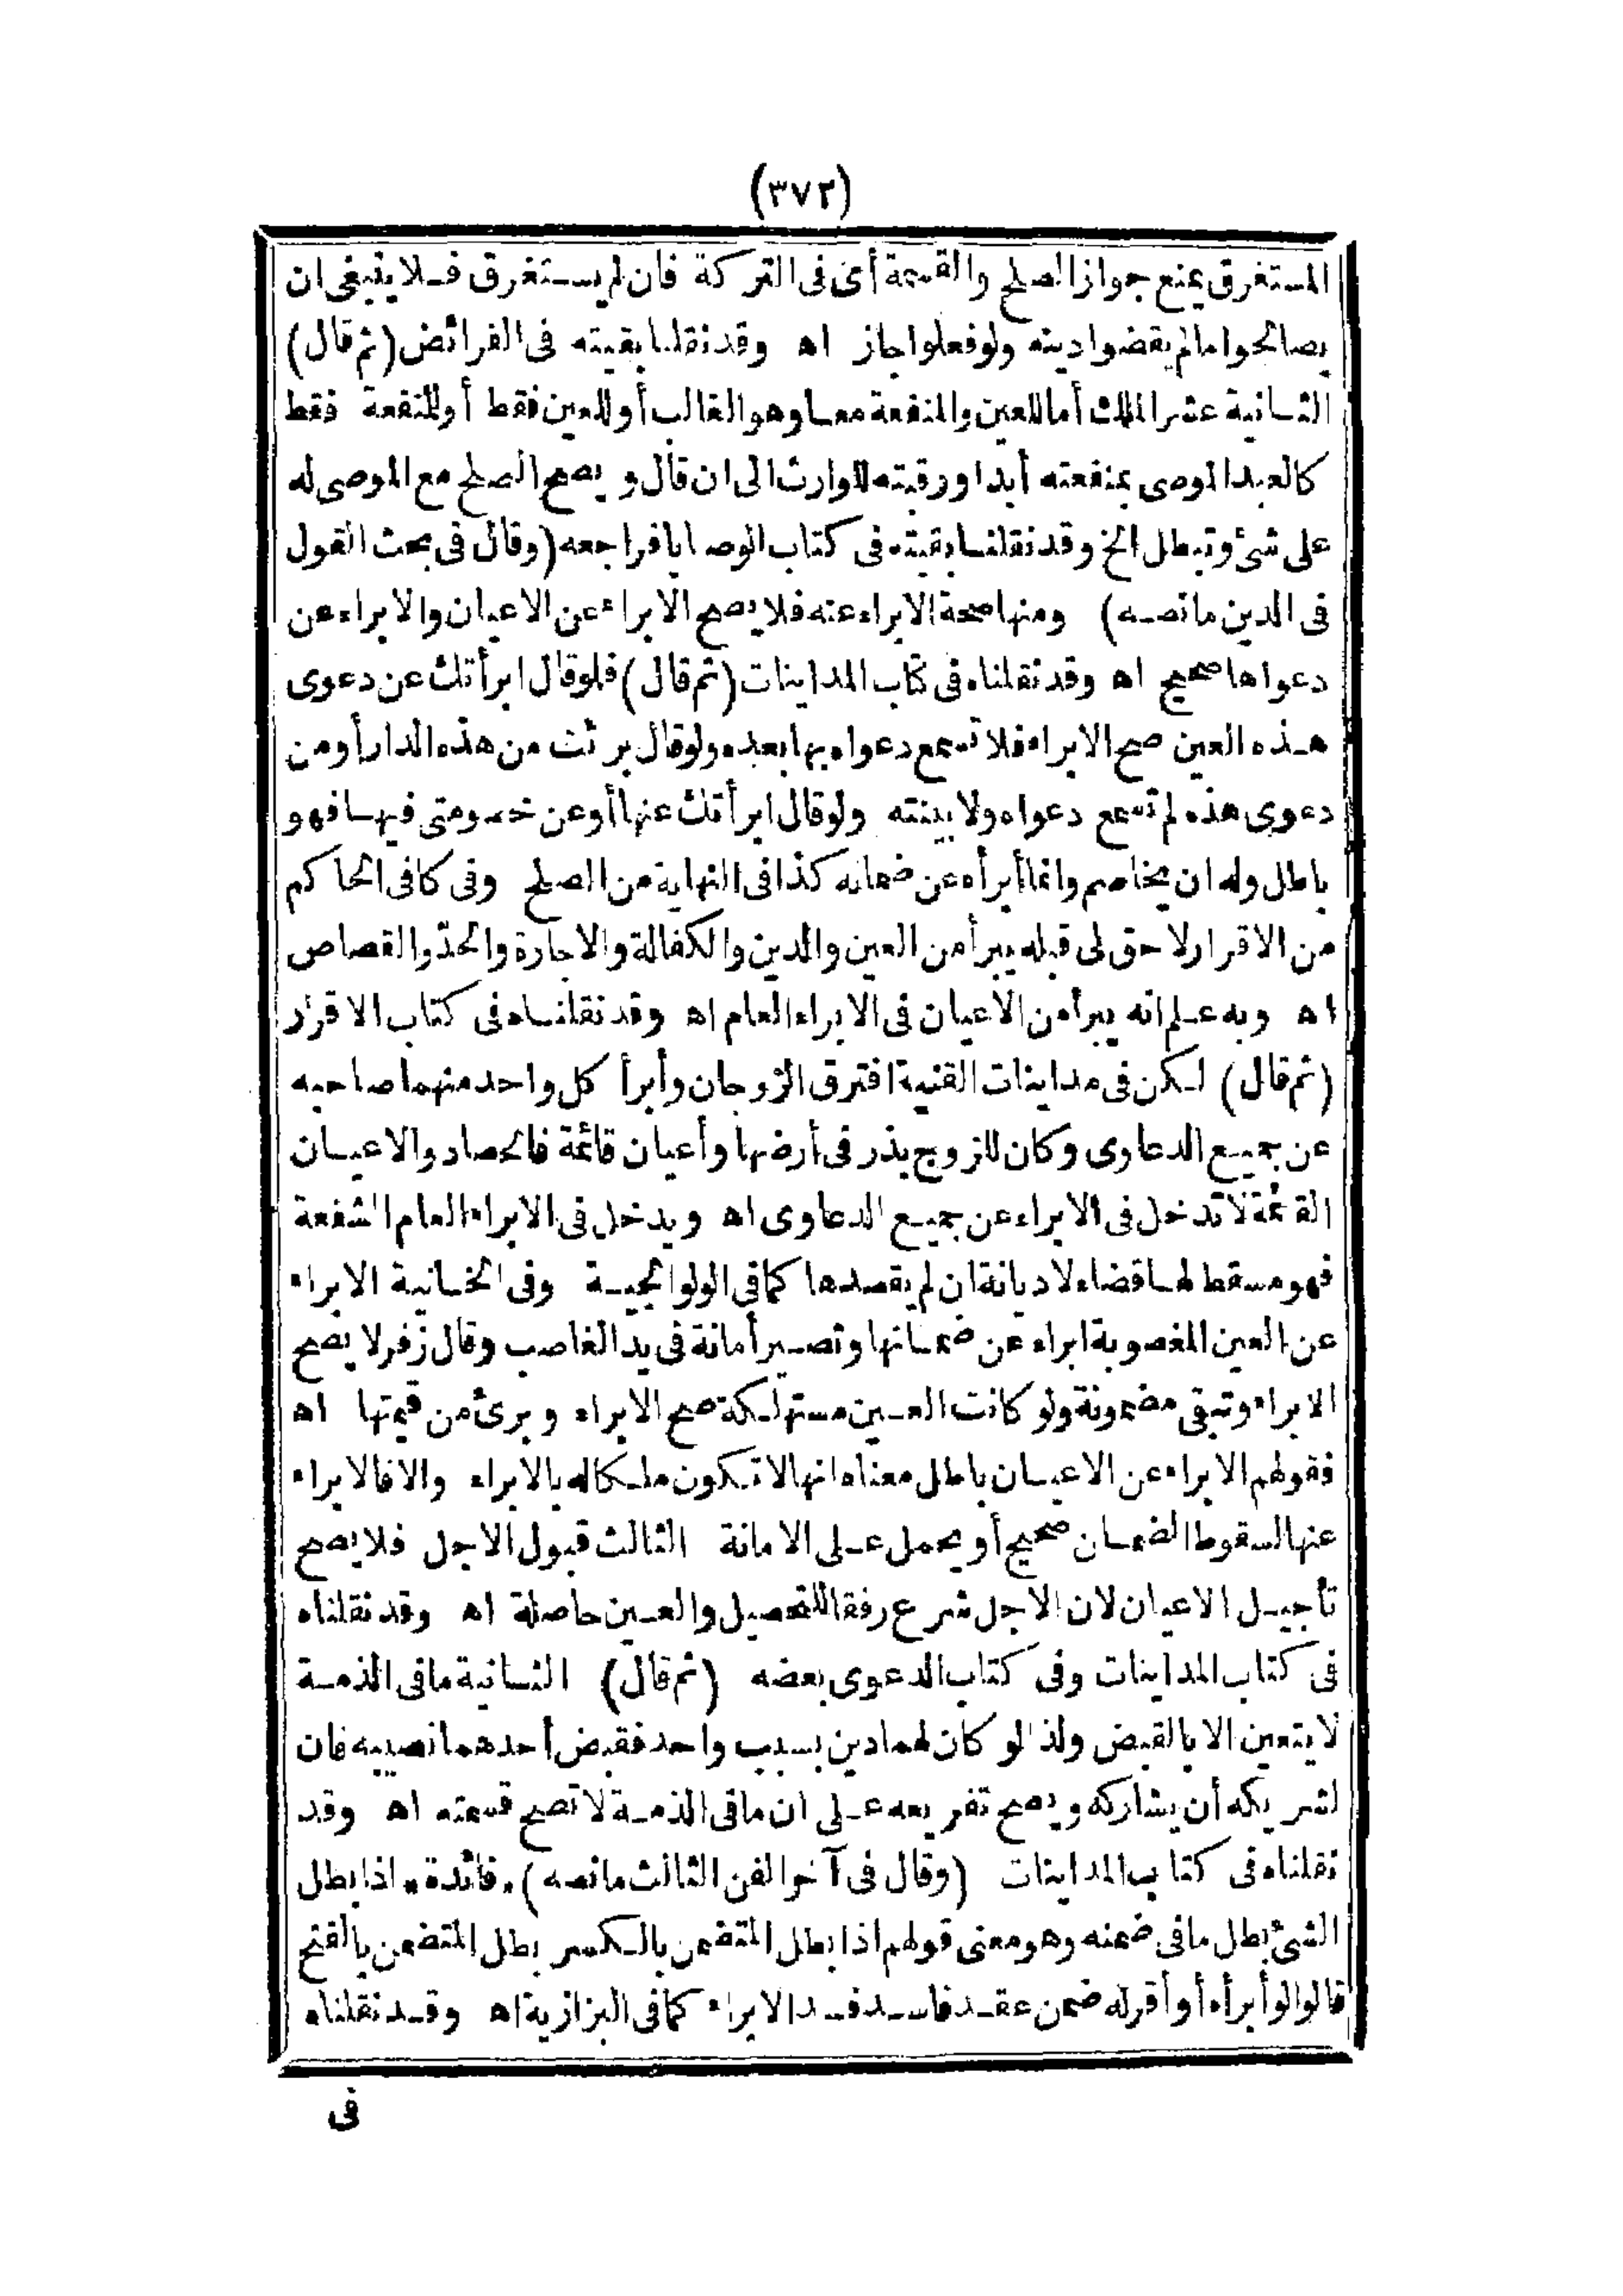 (٣٧٢)
المستغرق يمنع جواز الصلح والقسمة أى فى التركة فان لم يستغرق فلا ينبغى ان
يصالحوا مالم يقضوا دينه ولو فعلوا جاز اه وقد نقلنا بقيته فى الفرائض (ثم قال)
الثانية عشر الملك أما للعين والمنفعة معا وهو الغالب أو للعين فقط أو للمنفعة فقط
كالعبد الموصى بمنفعته أبدا ورقبته للوارث الى ان قال ويصح الصلح مع الموصى له
على شئ وتبطل الخ وقد نقلنا بقيته فى كتاب الوصايا فراجعه (وقال فى بحث القول
فى الدين مانصه) ومنها صحة الابراء عنه فلا يصح الابراء عن الاعيان والابراء عن
دعواها صحيح اه وقد نقلناه فى كتاب المداينات (ثم قال) فلو قال ابرأتك عن دعوى
هذه العين صح الابراء فلا تسمع دعواه بها بعده ولو قال برئت من هذه الدار أو من
دعوى هذه لم تسمع دعواه ولا بينته ولو قال ابرأتك عنها أو عن خصومتى فيها فهو
باطل وله ان يخاصم وانما أبرأه عن ضمانه كذا فى النهاية من الصلح وفى كافى الحاكم
من الاقرار لا حق لى قبله يبرأ من العين والدين والكفالة والاجارة والحدّ والقصاص
اه وبه علم انه يبرأ من الاعيان فى الابراء العام اه وقد نقلناه فى كتاب الاقرار
(ثم قال) لكن فى مداينات القنية افترق الزوجان وأبرأ كل واحد منهما صاحبه
عن جميع الدعاوى وكان للزوج بذر فى أرضها وأعيان قائمة فالحصاد والاعيان
القائمة لا تدخل فى الابراء عن جميع الدعاوى اه ويدخل فى الابراء العام الشفعة
فهو مسقط لها قضاء لا ديانة ان لم يقصدها كما فى الولوالجية وفى الخانية الابراء
عن العين المغصوبة ابراء عن ضمانها وتصير أمانة فى يد الغاصب وقال زفر لا يصح
الابراء وتبقى مضمونة ولو كانت العين مستهلكة صح الابراء وبرئ من قيمتها اه
فقولهم الابراء عن الاعيان باطل معناه انها لا تكون ملكا له بالابراء والا فالابراء
عنها لسقوط الضمان صحيح أو يحمل على الامانة الثالث قبول الاجل فلا يصح
تأجيل الاعيان لان الاجل شرع رفقا للتحصيل والعين حاصلة اه وقد نقلناه
فى كتاب المداينات وفى كتاب الدعوى بعضه (ثم قال) الثانية ما فى الذمة
لا يتعين الا بالقبض ولذا لو كان لهما دين بسبب واحد فقبض أحدهما نصيبه فان
لشريكه أن يشاركه ويصح تفريعه على ان ما فى الذمة لا تصح قسمته اه وقد
نقلناه فى كتاب المداينات (وقال فى آخر الفن الثالث مانصه) * فائدة * اذا بطل
الشئ بطل ما فى ضمنه وهو معنى قولهم اذا بطل المتضمن بالكسر بطل المتضمن بالفتح
قالوا لو أبرأه أو أقر له ضمن عقد فاسد فسد الابراء كما فى البزازية اه وقد نقلناه
فى